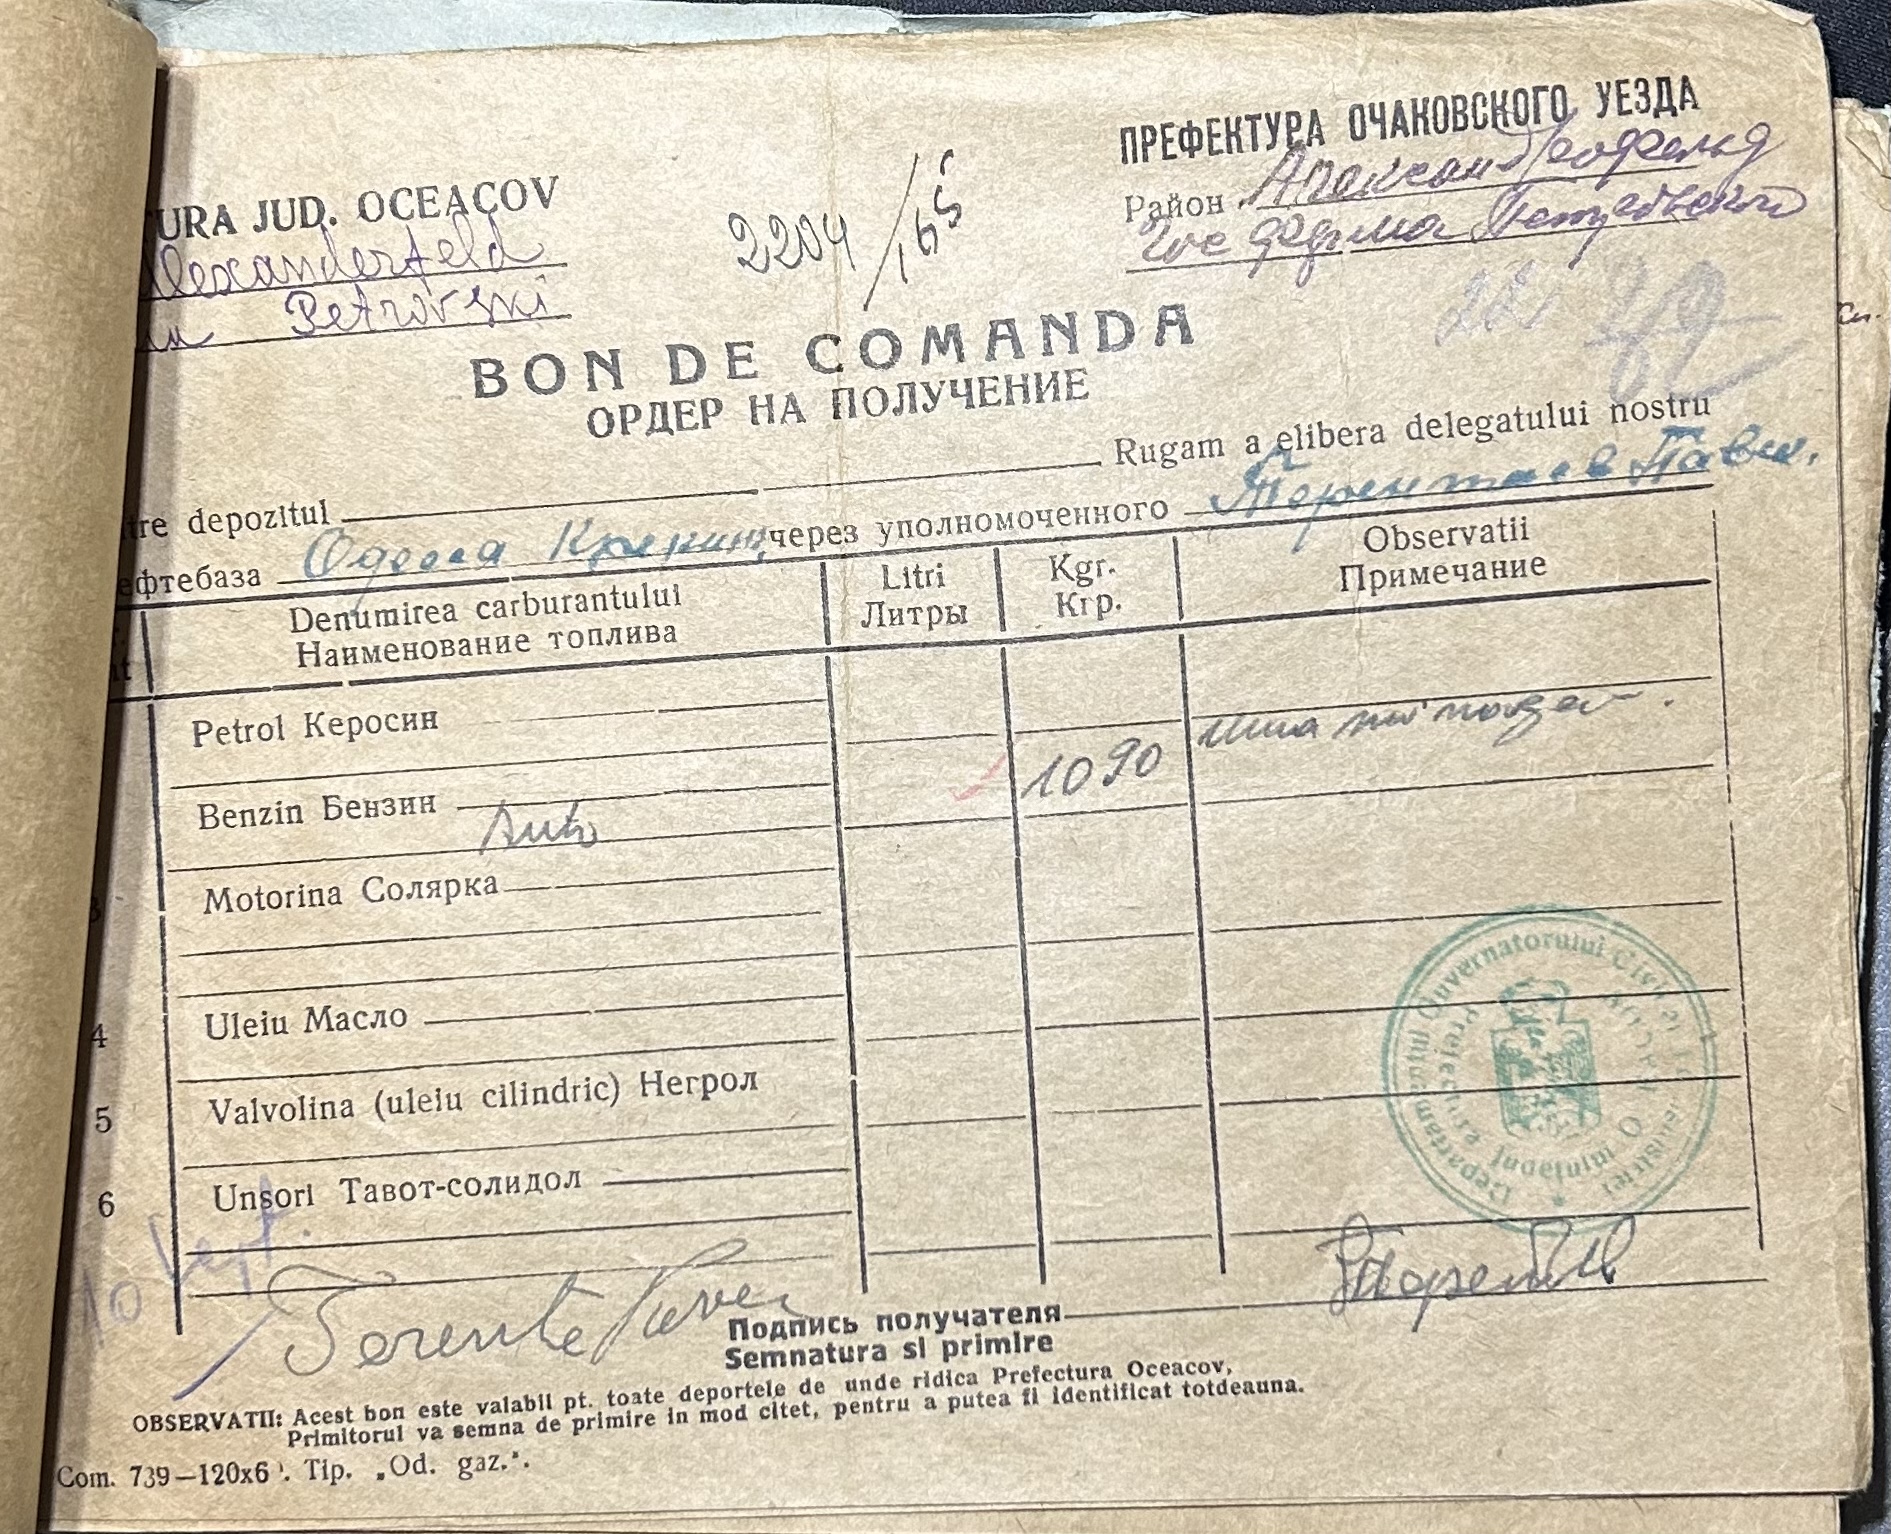 ПРЕФЕКТУРА ОЧАКОВСКОГО УЕЗДА
URA JUD. OCEACOV
2204/165
Район Александрофельд
lexanderfeld
Petrovski
BON DE COMANDA
ОРДЕР НА ПОЛУЧЕНИЕ
22
tre depozitul Rugam a elibera delegatului nostru
ефтебаза Одесса через уполномоченного
Denumirea carburantului Litri Kgr. Observatii
Наименование топлива Литры Кгр. Примечание
Petrol Керосин
Benzin Бензин 1090
Auto
Motorina Солярка
4 Uleiu Масло
5 Valvolina (uleiu cilindric) Негрол
6 Unsori Тавот-солидол
Departamentul Guvernatorului Civil
Prefectura Judeţului O
Terente Pavel
Подпись получателя
Semnatura si primire
OBSERVATII: Acest bon este valabil pt. toate deportele de unde ridica Prefectura Oceacov,
Primitorul va semna de primire in mod citet, pentru a putea fi identificat totdeauna.
Com. 739—120x6 . Tip. „Od. gaz.".